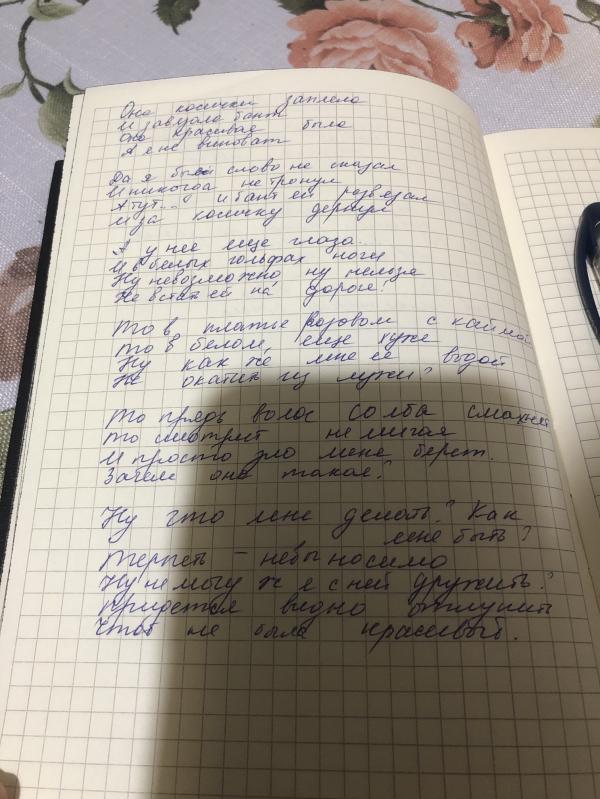 Она косички заплела
И завязала бант
Она красивая была
А я не виноват

Да я бы слово не сказал
И никогда не тронул
А тут... и бант ей развязал
И за косичку дернул

А у нее еще глаза
И в белых гольфах ноги
Ну невозможно ну нельзя
Не встать ей на дороге!

То в платье розовом с каймой
То в белом, еще хуже
Ну как же мне ее водой
Не окатить из лужи?

То прядь волос со лба смахнет
То смотрит не мигая
И просто зло меня берет.
Зачем она такая?

Ну что мне делать? Как
мне быть?
Терпеть - невыносимо
Ну не могу ж я с ней дружить?
Придется видно отлупить
Чтоб не была красивой.